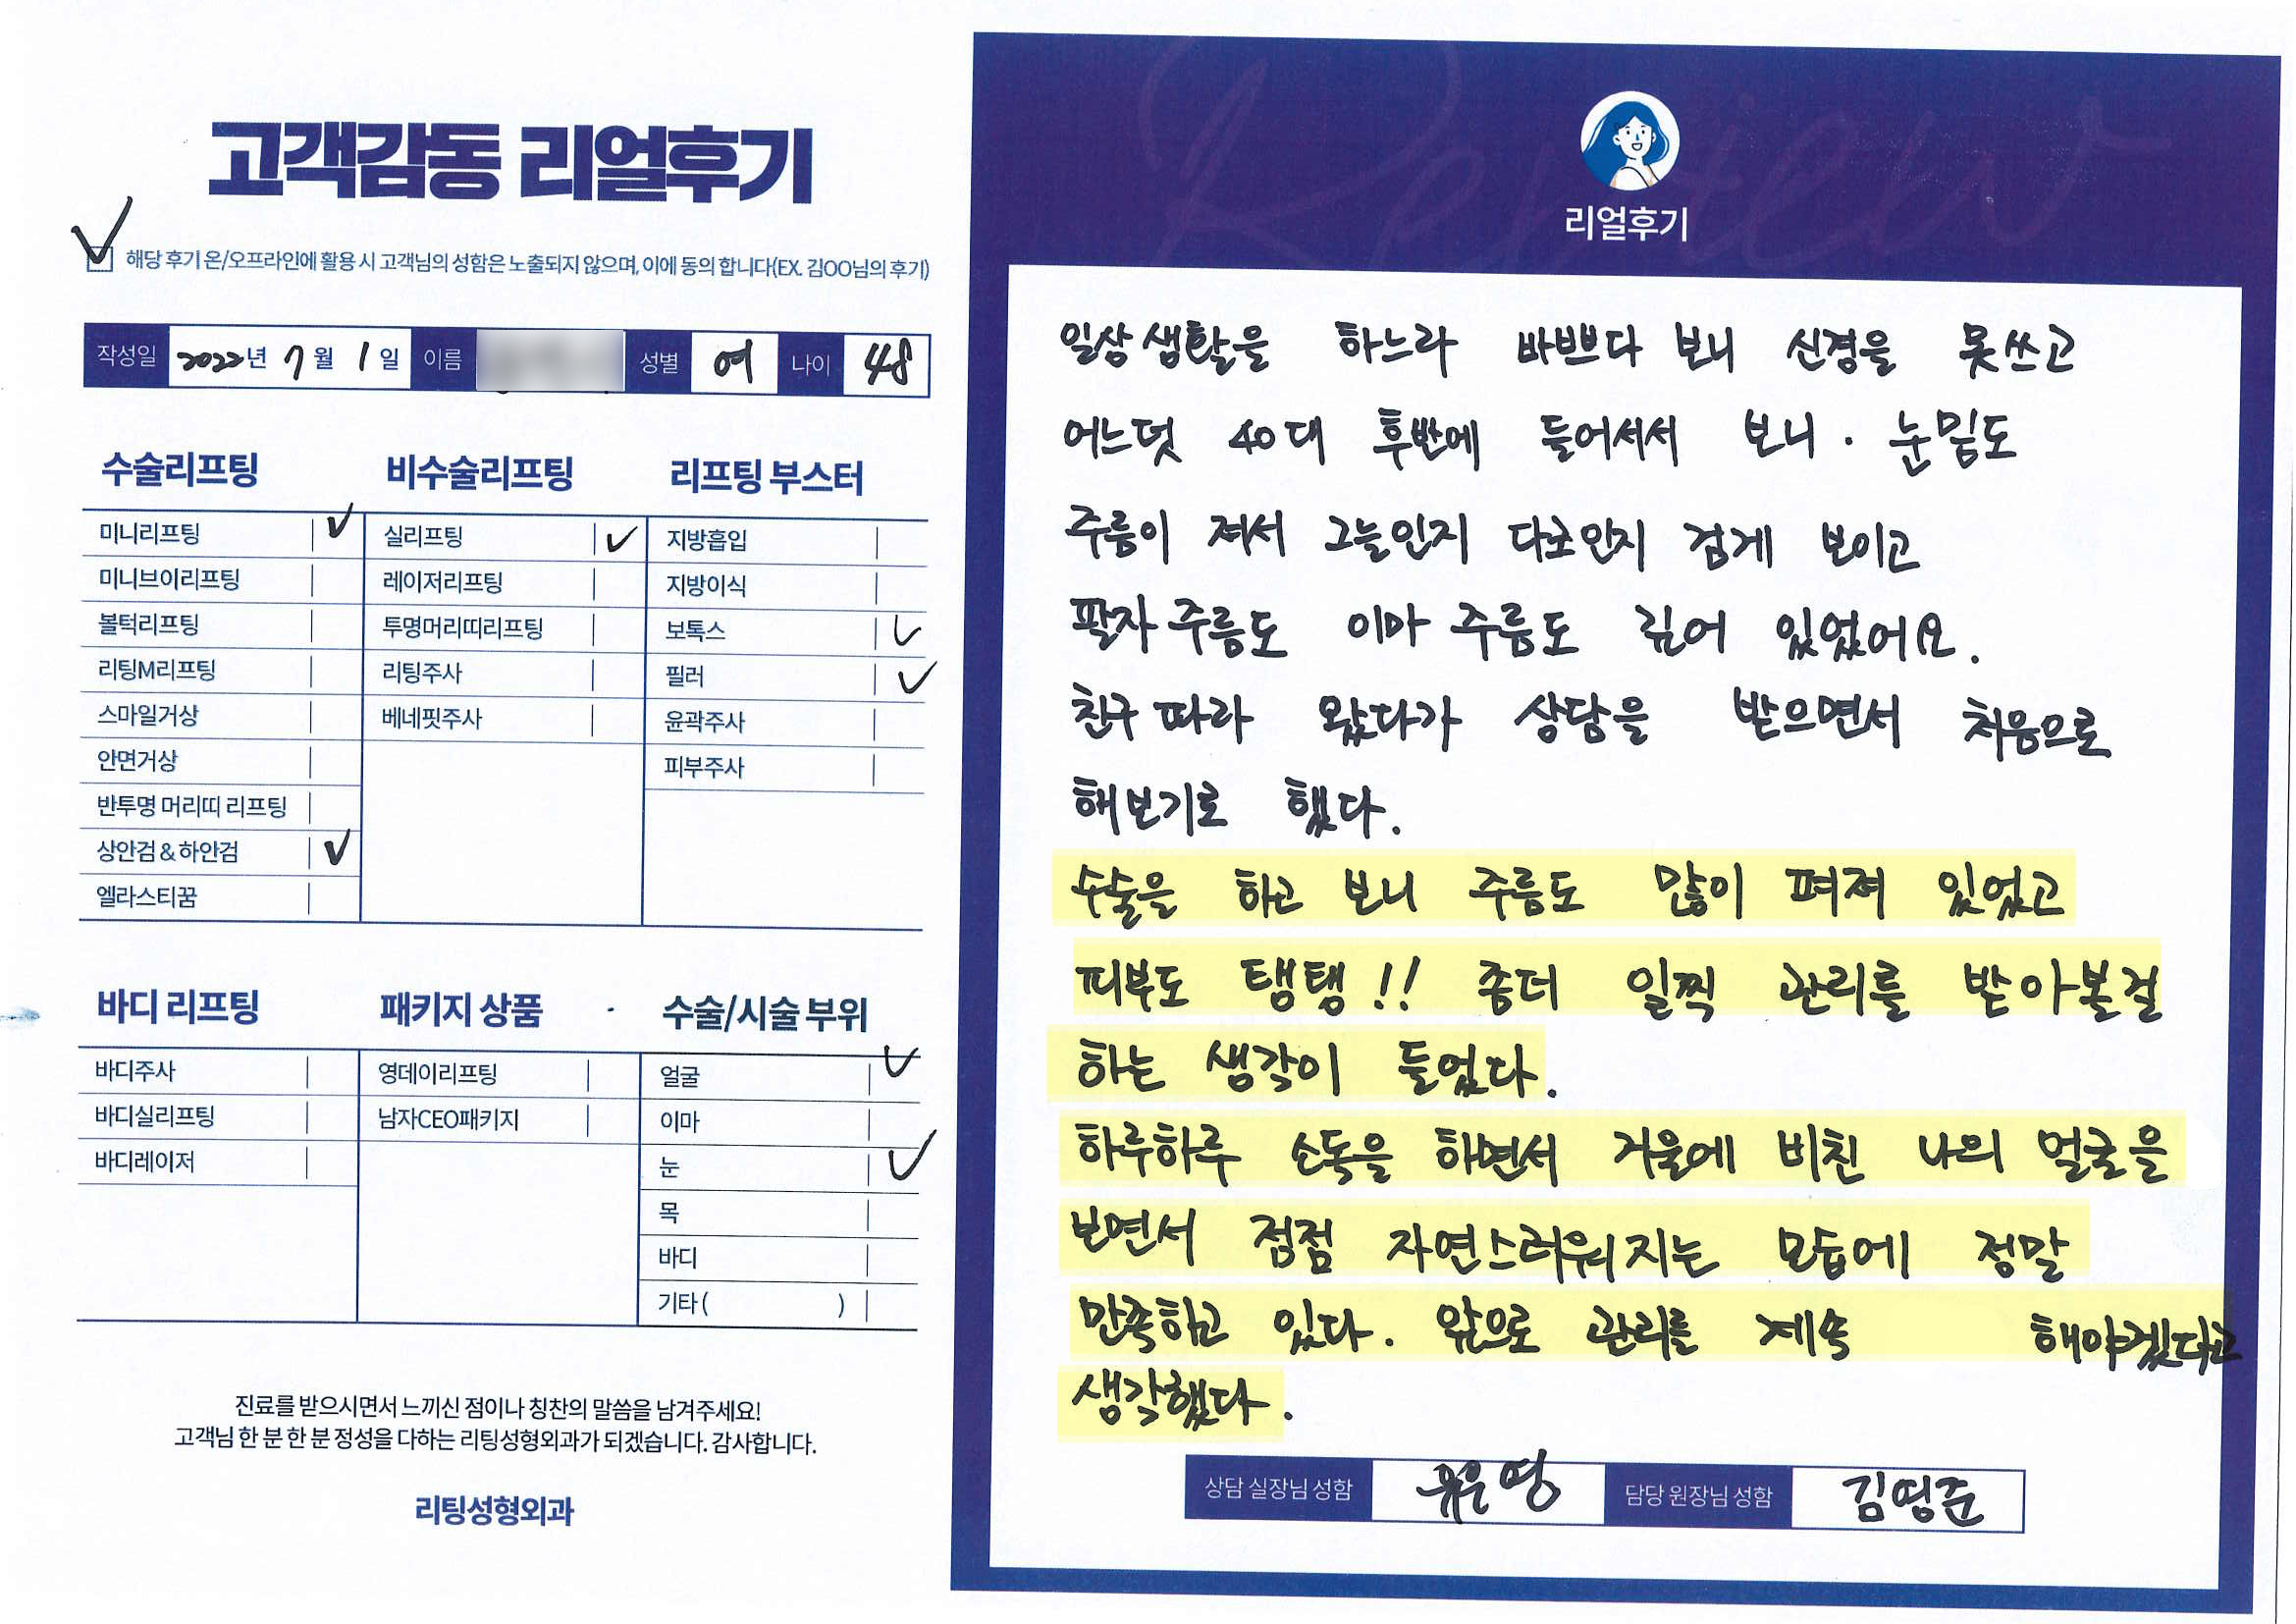 고객감동 리얼후기
해당 후기 온/오프라인에 활용 시 고객님의 성함은 노출되지 않으며, 이에 동의 합니다(EX. 김OO님의 후기)
작성일 2022년 7월 1일 이름 성별 여 나이 48
수술리프팅
미니리프팅
미니브이리프팅
볼턱리프팅
리팅M리프팅
스마일거상
안면거상
반투명 머리띠 리프팅
상안검 & 하안검
엘라스티꿈
비수술리프팅
실리프팅
레이저리프팅
투명머리띠리프팅
리팅주사
베네핏주사
리프팅 부스터
지방흡입
지방이식
보톡스
필러
윤곽주사
피부주사
바디 리프팅
바디주사
바디실리프팅
바디레이저
패키지 상품
영데이리프팅
남자CEO패키지
수술/시술 부위
얼굴
이마
눈
목
바디
기타 ( )
진료를 받으시면서 느끼신 점이나 칭찬의 말씀을 남겨주세요!
고객님 한 분 한 분 정성을 다하는 리팅성형외과가 되겠습니다. 감사합니다.
리팅성형외과
Review
리얼후기
일상생활을 하느라 바쁘다 보니 신경을 못쓰고
어느덧 40대 후반에 들어서서 보니. 눈밑도
주름이 져서 그늘인지 다크인지 검게 보이고
팔자주름도 이마 주름도 깊어 있었어요.
친구따라 왔다가 상담을 받으면서 처음으로
해보기로 했다.
수술을 하고 보니 주름도 많이 펴져 있었고
피부도 탱탱!! 좀더 일찍 관리를 받아볼걸
하는 생각이 들었다.
하루하루 소독을 하면서 거울에 비친 나의 얼굴을
보면서 점점 자연스러워지는 모습에 정말
만족하고 있다. 앞으로 관리를 계속 해야겠다고
생각했다.
상담 실장님 성함 유은영 담당 원장님 성함 김영준